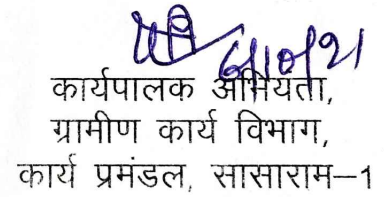 कार्यपालक अभियंता,
ग्रामीण कार्य विभाग,
कार्य प्रमंडल, सासाराम–1